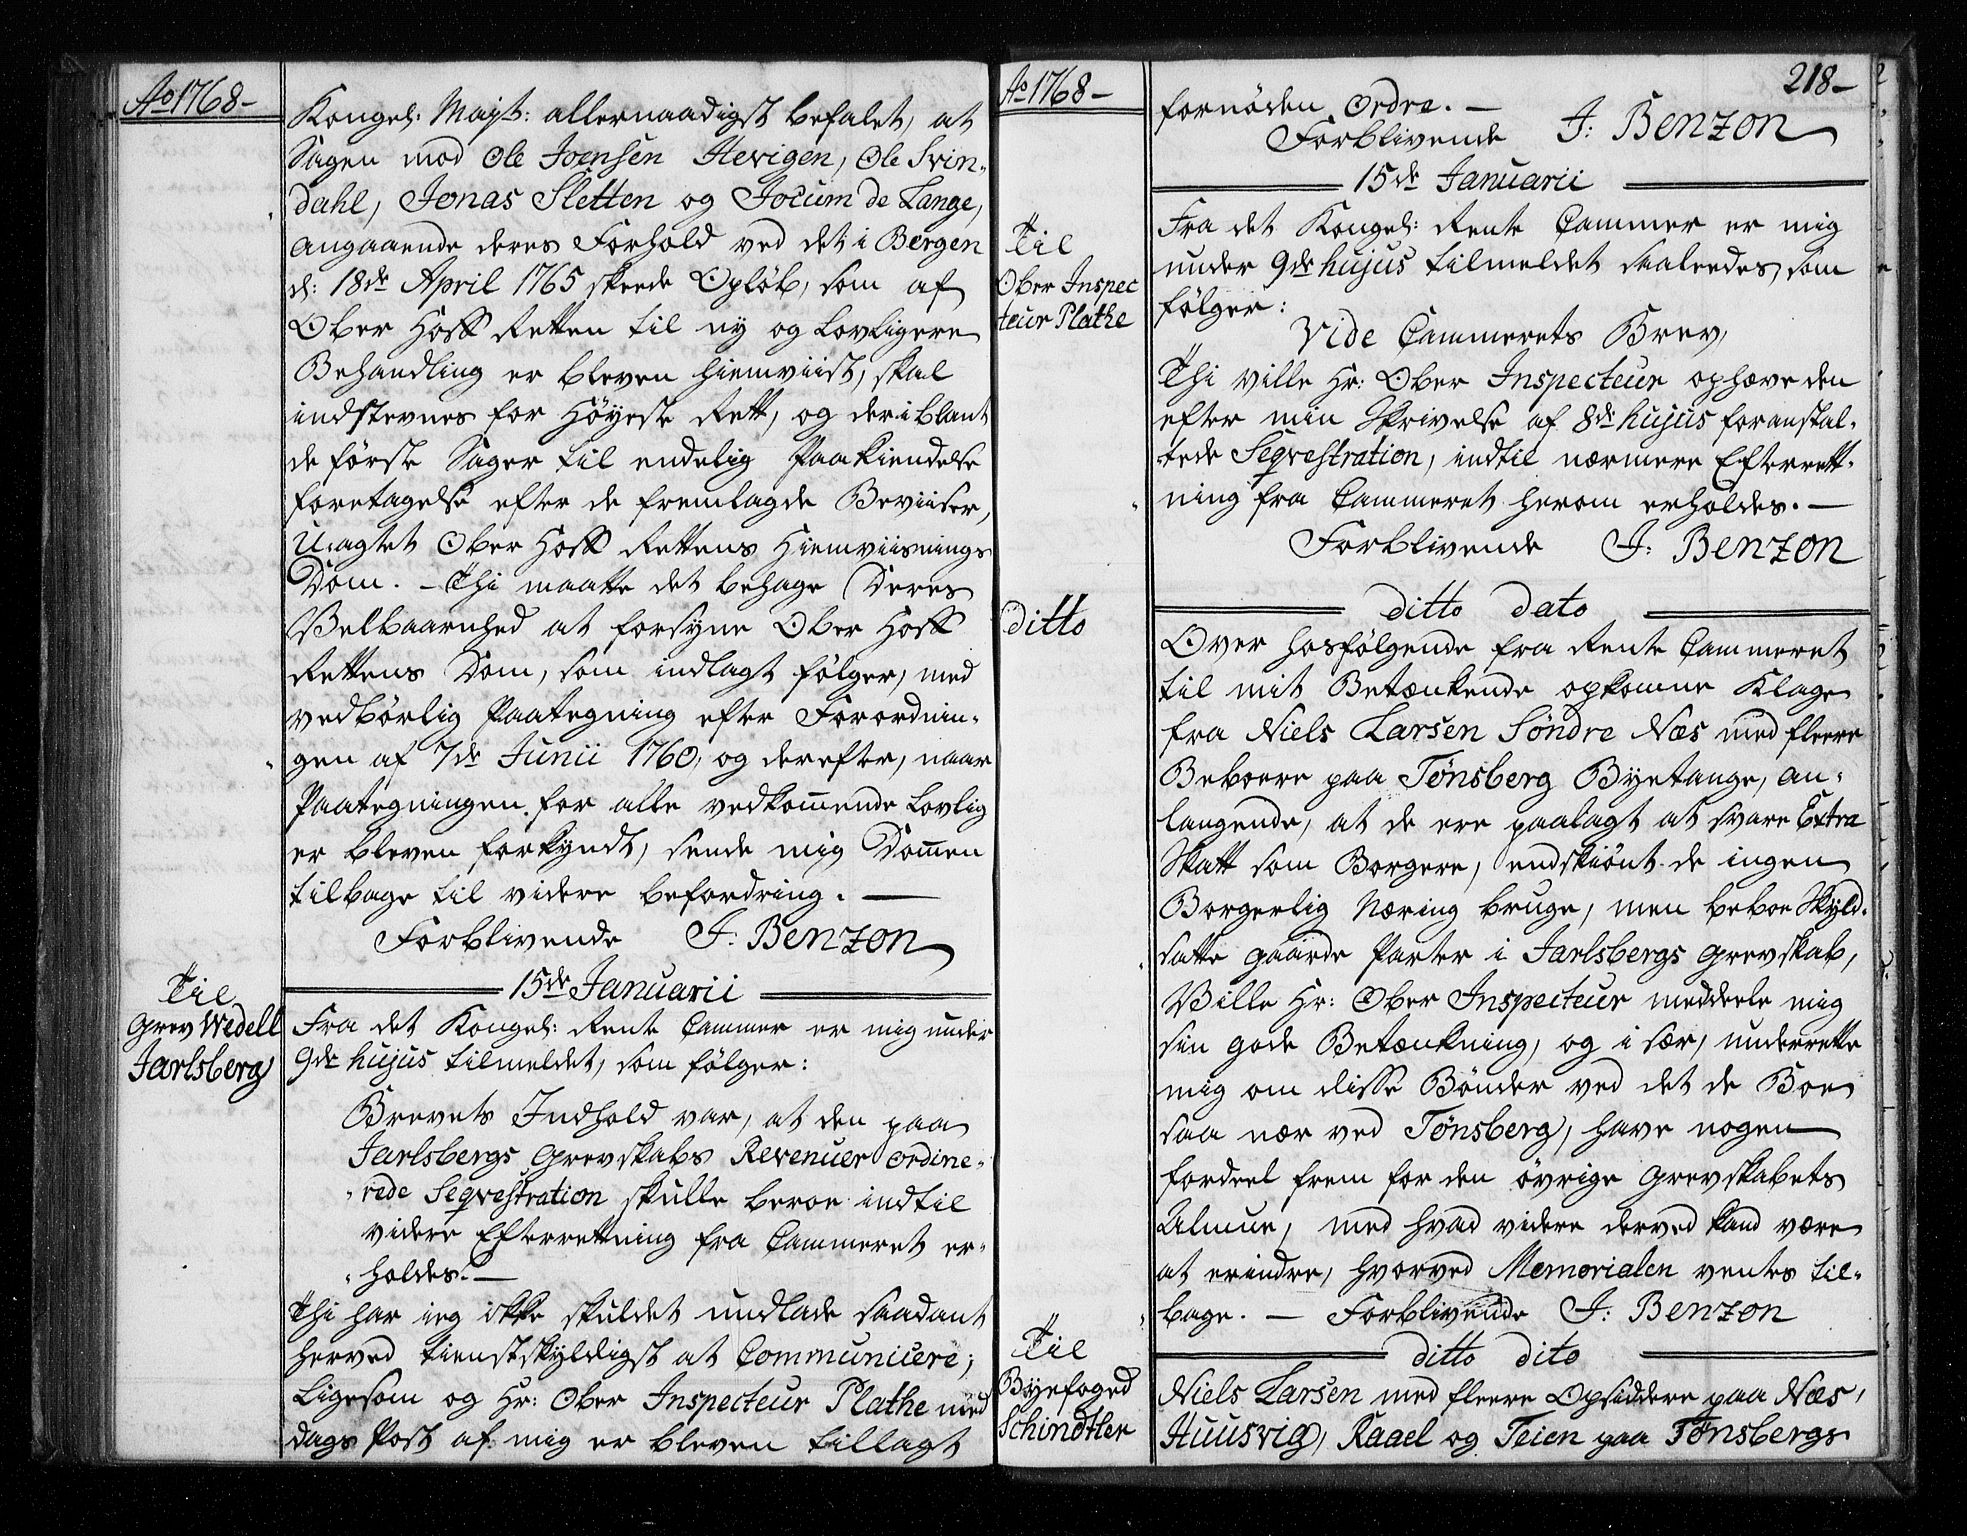 Ao 1768-
Kongel: Mayst: allernaadigst befalet, at
Sagen mod Ole Joensen Hevigen, Ole Svin-
dahl, Jonas Sletten og Jocum de Lange,
angaaende deres Forhold ved det i Bergen
d: 18de April 1765 skeede Opløb, som af
Ober Hoff Retten til ny og lovligere
Behandling er bleven hiemviist, skal
indstevnes for Høyeste Rett, og deriblant
de første Sager til endelig Paakiendelse
foretagelse efter de fremlagde Beviiser,
Uagtet Ober Hoff Rettens Hiemviisnings
Dom. - Thi maatte det behage Deres
Velbaarnhed at forsyne Ober Hoff
Rettens Dom, som indlagt følger, med
vedbørlig Paategning efter Forordnin-
gen af 7de Junii 1760, og derefter, naar
Paategningen for alle vedkommende lovlig
er bleven forkyndt, sende mig Dommen
tilbage til videre befordring. -
Forblivende J: Benzon
15de Januarii
Til
Grev Wedell
Jarlsberg
Fra det Kongel: Rente Cammer er mig under
9de hujus tilmeldet, som følger:
Brevets Indhold var, at den paa
Jarlsbergs Grevskabs Revenuer ordine-
rede Seqvestration skulle beroe indtil
videre Efterrettning fra Cammeret er-
holdes. -
Thi har ieg ikke skuldet undlade saadant
herved tienstskyldigst at Communicere;
Ligesom og Hr: Ober Inspecteur Plathe med
dags Post af mig er bleven tillagt
Ao 1768-
218-
fornøden Ordre. -
Forblivende J: Benzon
15de Januarii
Til
Ober Inspec
teur Plathe
Fra det Kongel: Rente Cammer er mig
under 9de hujus tilmeldet saaledes, som
følger:
Vide Cammerets Brev,
Thi ville Hr: Ober Inspecteur ophæve den
efter min Skrivelse af 8de hujus foranstal-
tede Seqvestration, indtil nærmere Efterrett-
ning fra Cammeret herom erholdes. -
Forblivende J: Benzon
ditto dato
ditto
Over hosfølgende fra Rente Cammeret
til mit Betænkende opkomne Klage
fra Niels Larsen Søndre Næs med fleere
Beboere paa Tønsberg Byetange, an-
langende, at de ere paalagt at svare Extra
Skatt som Borgere, endskiønt de ingen
Borgerlig Næring bruge, men beboe Skyld-
satte gaarde Parter i Jarlsbergs Grevskab,
Ville Hr: Ober Inspecteur meddeele mig
sin gode Betænkning, og i sær, underrette
mig om disse Bønder ved det de Boe
saa nær ved Tønsberg, have nogen
fordeel frem for den øvrige Grevskabets
Almue, med hvad videre derved kand være
at erindre, hvorved Memorialen ventes til-
bage. - Forblivende J: Benzon
ditto dito
Til
Byefoged
Schindtler
Niels Larsen med fleere Opsiddere paa Næs,
Huusvig, Raael og Teien paa Tønsbergs